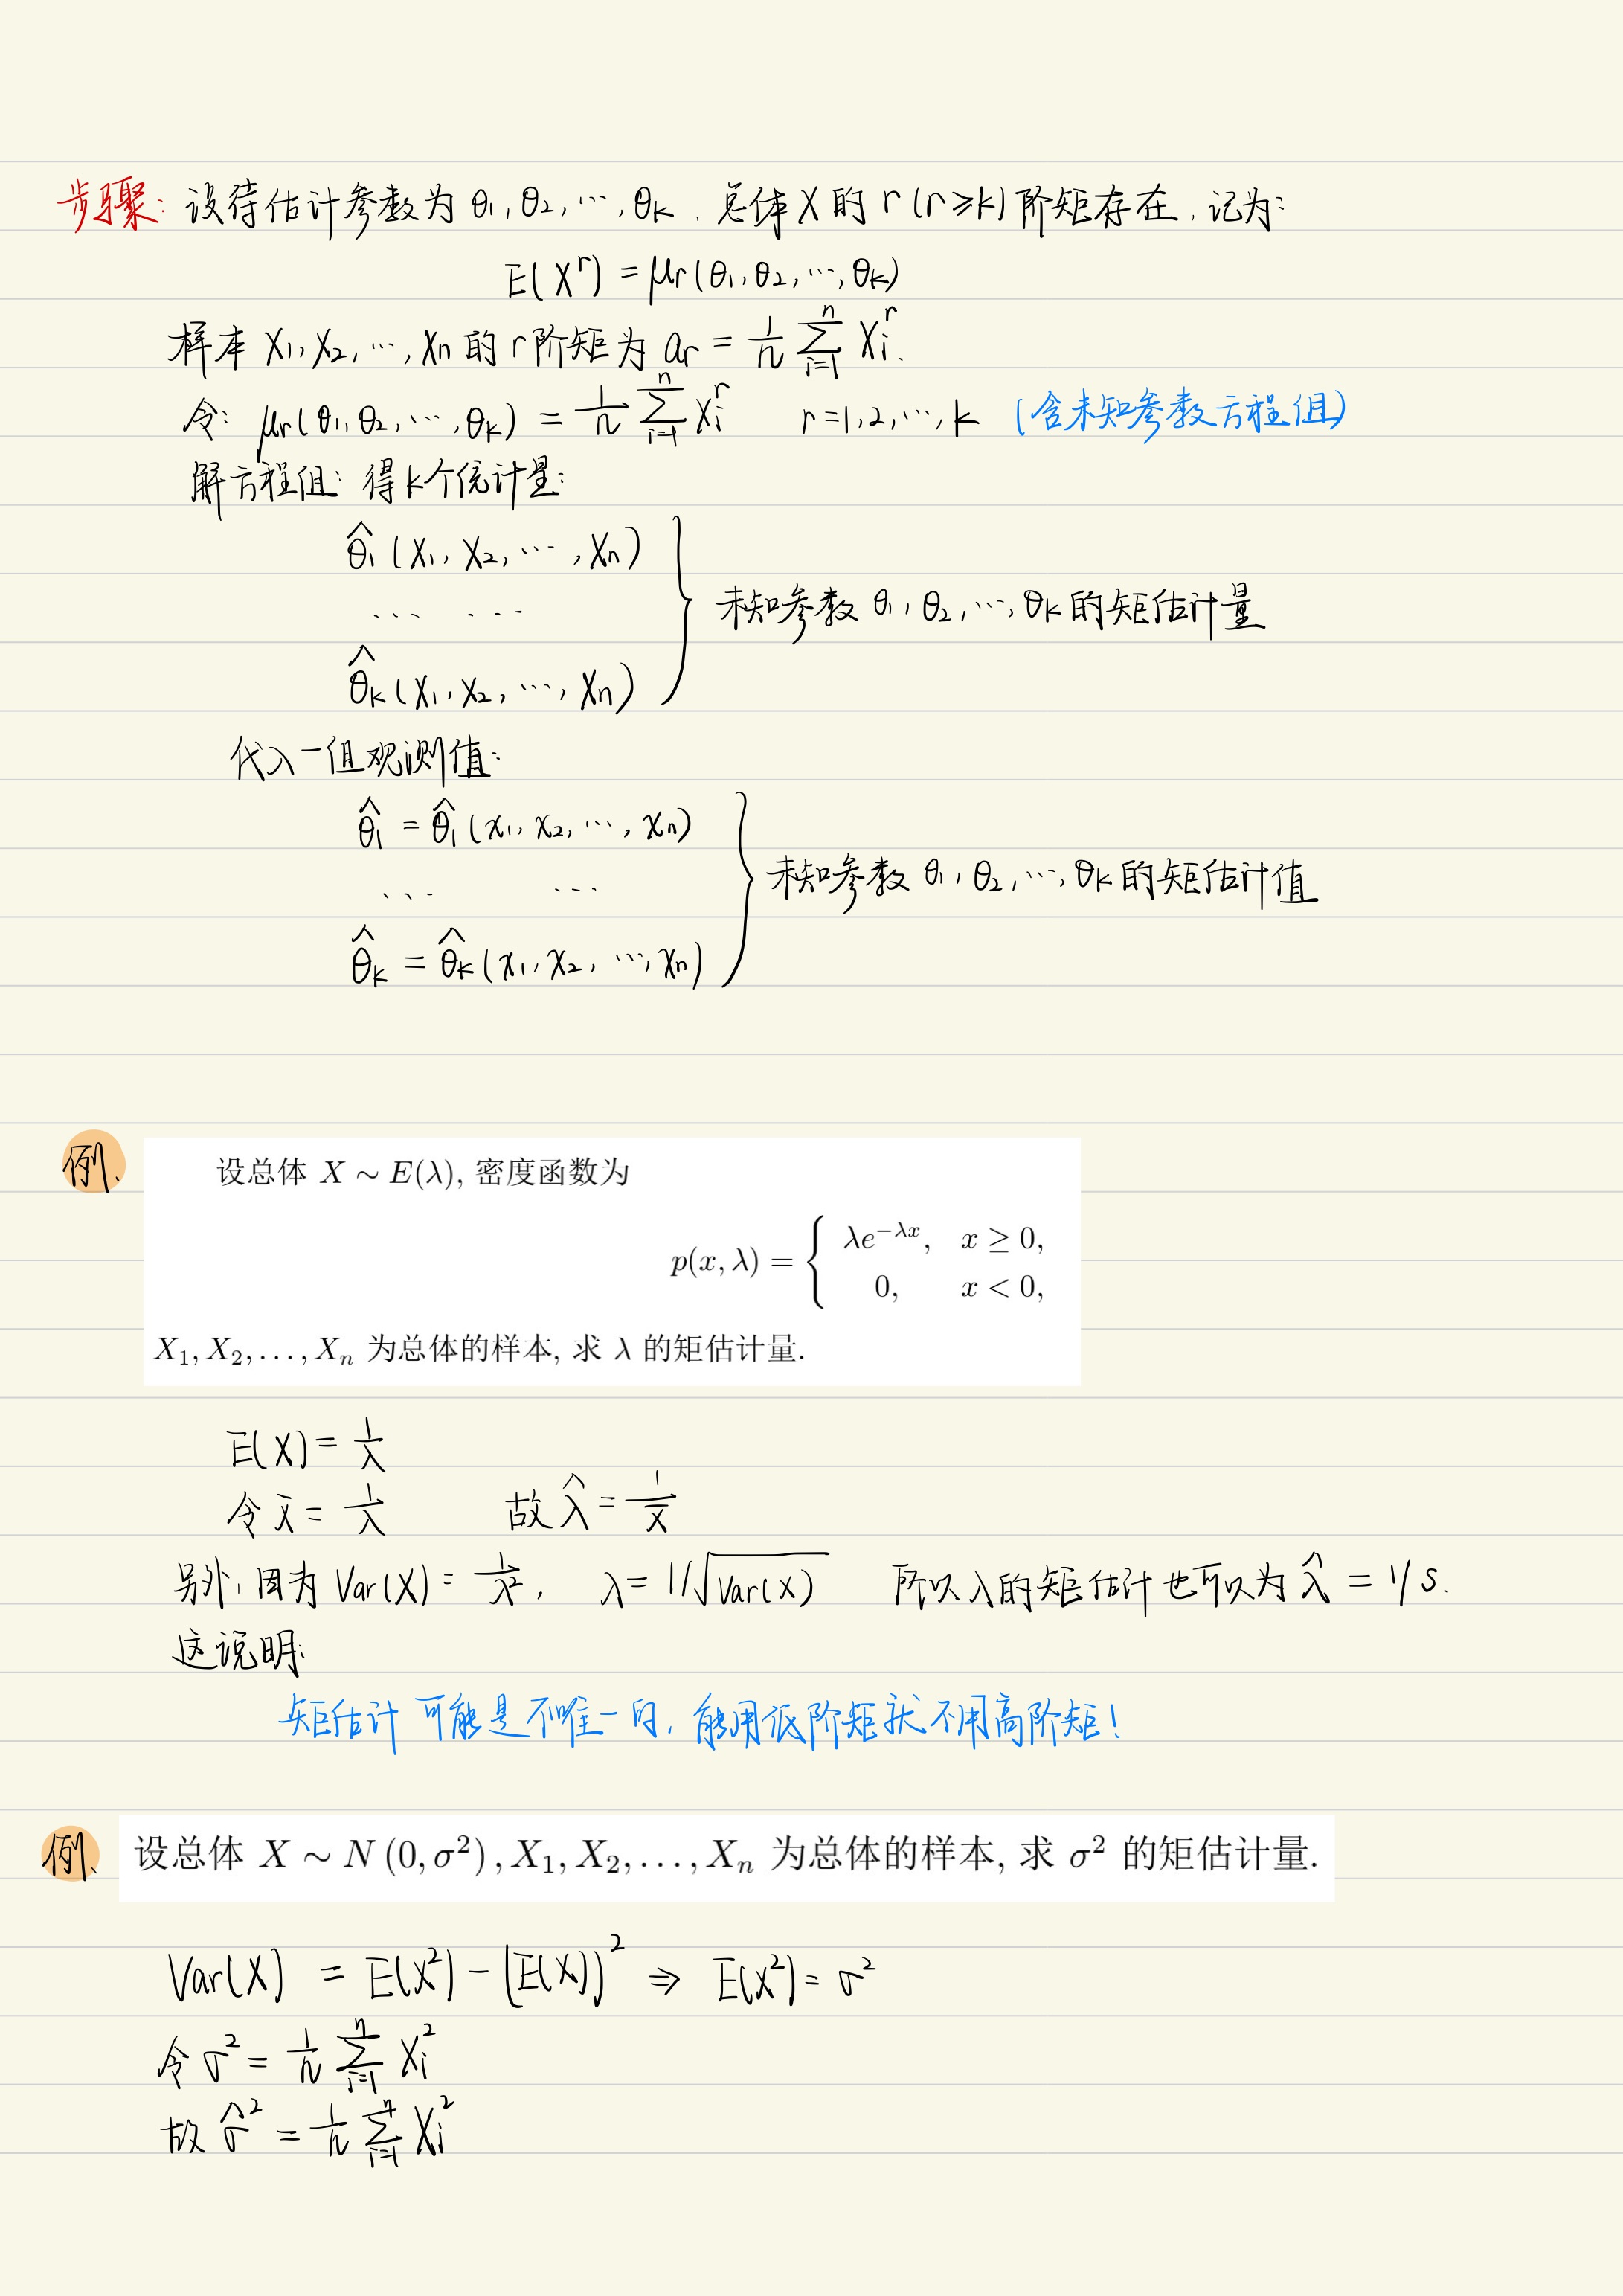 步骤: 设待估计参数为 θ₁, θ₂, …, θₖ. 总体X的 r(r≥k)阶矩存在, 记为:
E(Xʳ) = μᵣ(θ₁, θ₂, …, θₖ)
样本 X₁, X₂, …, Xₙ 的 r阶矩为 aᵣ = 1/n ∑ᵢ₌₁ⁿ Xᵢʳ.
令: μᵣ(θ₁, θ₂, …, θₖ) = 1/n ∑ᵢ₌₁ⁿ Xᵢʳ r=1, 2, …, k (含未知参数方程组)
解方程组: 得k个统计量:
θ̂₁(X₁, X₂, …, Xₙ)
… …
未知参数 θ₁, θ₂, …, θₖ的矩估计量
θ̂ₖ(X₁, X₂, …, Xₙ)
代入一组观测值:
θ̂₁ = θ̂₁(x₁, x₂, …, xₙ)
… …
未知参数 θ₁, θ₂, …, θₖ的矩估计值
θ̂ₖ = θ̂ₖ(x₁, x₂, …, xₙ)
例、 设总体 X ∼ E(λ), 密度函数为
p(x, λ) = { λe^{−λx}, x ≥ 0,
0, x < 0,
X₁, X₂, …, Xₙ 为总体的样本, 求 λ 的矩估计量.
E(X) = 1/λ
令 x̄ = 1/λ 故 λ̂ = 1/x̄
另外, 因为 Var(X) = 1/λ², λ = 1/√Var(X) 所以λ的矩估计也可以为 λ̂ = 1/s.
这说明:
矩估计可能是不唯一的, 能用低阶矩就不用高阶矩!
例、 设总体 X ∼ N(0, σ²), X₁, X₂, …, Xₙ 为总体的样本, 求 σ² 的矩估计量.
Var(X) = E(X²) − (E(X))² ⇒ E(X²) = σ²
令 σ² = 1/n ∑ᵢ₌₁ⁿ Xᵢ²
故 σ̂² = 1/n ∑ᵢ₌₁ⁿ Xᵢ²